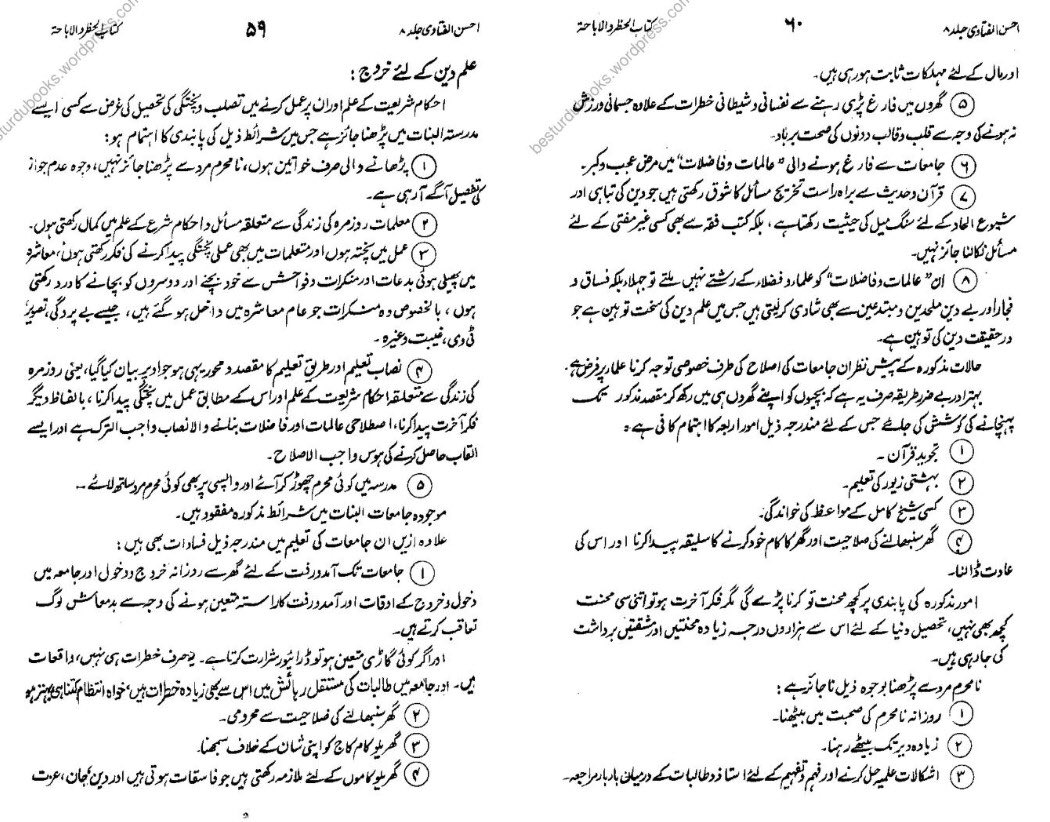 احسن الفتاوی جلد ۸
۵۹
کتاب الحظر والاباحۃ
علم دین کے لئے خروج :
احکام شریعت کے علم اور ان پر عمل کرنے میں تصلب و پختگی کی تحصیل کی غرض سے کسی ایسے
مدرسۃ البنات میں پڑھنا جائز ہے جس میں شرائط ذیل کی پابندی کا اہتمام ہو:
۱ پڑھانے والی صرف خواتین ہوں، نامحرم مرد سے پڑھنا جائز نہیں، وجوہ عدم جواز
کی تفصیل آگے آرہی ہے۔
۲ معلمات روزمرہ کی زندگی سے متعلقہ مسائل و احکام شرع کے علم میں کمال رکھتی ہوں۔
۳ عمل میں پختہ ہوں اور متعلمات میں بھی عملی پختگی پیدا کرنے کی فکر رکھتی ہوں، معاشرہ
میں پھیلی ہوئی بدعات اور منکرات و فواحش سے خود بچنے اور دوسروں کو بچانے کا درد رکھتی
ہوں، بالخصوص وہ منکرات جو عام معاشرہ میں داخل ہو گئے ہیں، جیسے بے پردگی، تصویر
ٹی وی، غیبت وغیرہ۔
۴ نصاب تعلیم اور طریق تعلیم کا مقصد و محور یہی ہو جو اوپر بیان کیا گیا، یعنی روزمرہ
کی زندگی سے متعلقہ احکام شریعت کے علم اور اس کے مطابق عمل میں پختگی پیدا کرنا، بالفاظ دیگر
فکر آخرت پیدا کرنا، اصطلاحی عالمات اور فاضلات بنانے والا نصاب واجب الترک ہے اور ایسے
القاب حاصل کرنے کی ہوس واجب الاصلاح۔
۵ مدرسہ میں کوئی محرم چھوڑ کر آئے اور واپسی پر بھی کوئی محرم مرد ساتھ لائے۔
موجودہ جامعات البنات میں شرائط مذکورہ مفقود ہیں۔
علاوہ ازیں ان جامعات کی تعلیم میں مندرجہ ذیل فسادات بھی ہیں :
۱ جامعات تک آمد و رفت کے لئے گھر سے روزانہ خروج و دخول اور جامعہ میں
دخول و خروج کے اوقات اور آمد و رفت کا راستہ متعین ہونے کی وجہ سے بدمعاش لوگ
تعاقب کرتے ہیں۔
اور اگر کوئی گاڑی متعین ہو تو ڈرائیور شرارت کرتا ہے۔ یہ صرف خطرات ہی نہیں، واقعات
ہیں۔ اور جامعہ میں طالبات کی مستقل رہائش میں اس سے بھی زیادہ خطرات ہیں، خواہ انتظام کتنا ہی بہتر ہو
۲ گھر سنبھالنے کی صلاحیت سے محرومی۔
۳ گھریلو کام کاج کو اپنی شان کے خلاف سمجھنا۔
۴ گھریلو کاموں کے لئے ملازمہ رکھتی ہیں جو فاسقات ہوتی ہیں اور دین، جان، عزت
احسن الفتاوی جلد ۸
۶۰
کتاب الحظر والاباحۃ
اور مال کے لئے مہلکات ثابت ہو رہی ہیں۔
۵ گھروں میں فارغ پڑی رہنے سے نفسانی و شیطانی خطرات کے علاوہ جسمانی ورزش
نہ ہونے کی وجہ سے قلب و قالب دونوں کی صحت برباد۔
۶ جامعات سے فارغ ہونے والی "عالمات و فاضلات" میں مرض عجب و کبر۔
۷ قرآن و حدیث سے براہ راست تخریج مسائل کا شوق رکھتی ہیں جو دین کی تباہی اور
شیوع الحاد کے لئے سنگ میل کی حیثیت رکھتا ہے، بلکہ کتب فقہ سے بھی کسی غیر مفتی کے لئے
مسائل نکالنا جائز نہیں۔
۸ ان "عالمات و فاضلات" کو علماء و فضلاء کے رشتے نہیں ملتے تو جہلاء بلکہ فساق و
فجار اور بے دین ملحدین و مبتدعین سے بھی شادی کر لیتی ہیں جس میں علم دین کی سخت توہین ہے جو
در حقیقت دین کی توہین ہے۔
حالات مذکورہ کے پیش نظر ان جامعات کی اصلاح کی طرف خصوصی توجہ کرنا علماء پر فرض ہے۔
بہتر اور بے ضرر طریقہ صرف یہ ہے کہ بچیوں کو اپنے گھروں ہی میں رکھ کر مقصد مذکور تک
پہنچانے کی کوشش کی جائے جس کے لئے مندرجہ ذیل امور اربعہ کا اہتمام کافی ہے۔
۱ تجوید قرآن۔
۲ بہشتی زیور کی تعلیم۔
۳ کسی شیخ کامل کے مواعظ کی خواندگی۔
۴ گھر سنبھالنے کی صلاحیت اور گھر کا کام خود کرنے کا سلیقہ پیدا کرنا اور اس کی
عادت ڈالنا۔
امور مذکورہ کی پابندی پر کچھ محنت تو کرنا پڑے گی مگر فکر آخرت ہو تو اتنی سی محنت
کچھ بھی نہیں، تحصیل دنیا کے لئے اس سے ہزاروں درجہ زیادہ محنتیں اور مشقتیں برداشت
کی جا رہی ہیں۔
نامحرم مرد سے پڑھنا بوجوہ ذیل ناجائز ہے :
۱ روزانہ نامحرم کی صحبت میں بیٹھنا۔
۲ زیادہ دیر تک بیٹھے رہنا۔
۳ اشکالات علمیہ حل کرنے اور فہم و تفہیم کے لئے استاذ و طالبات کے درمیان بار بار مراجعہ۔
besturdubooks.wordpress.com
besturdubooks.wordpress.com